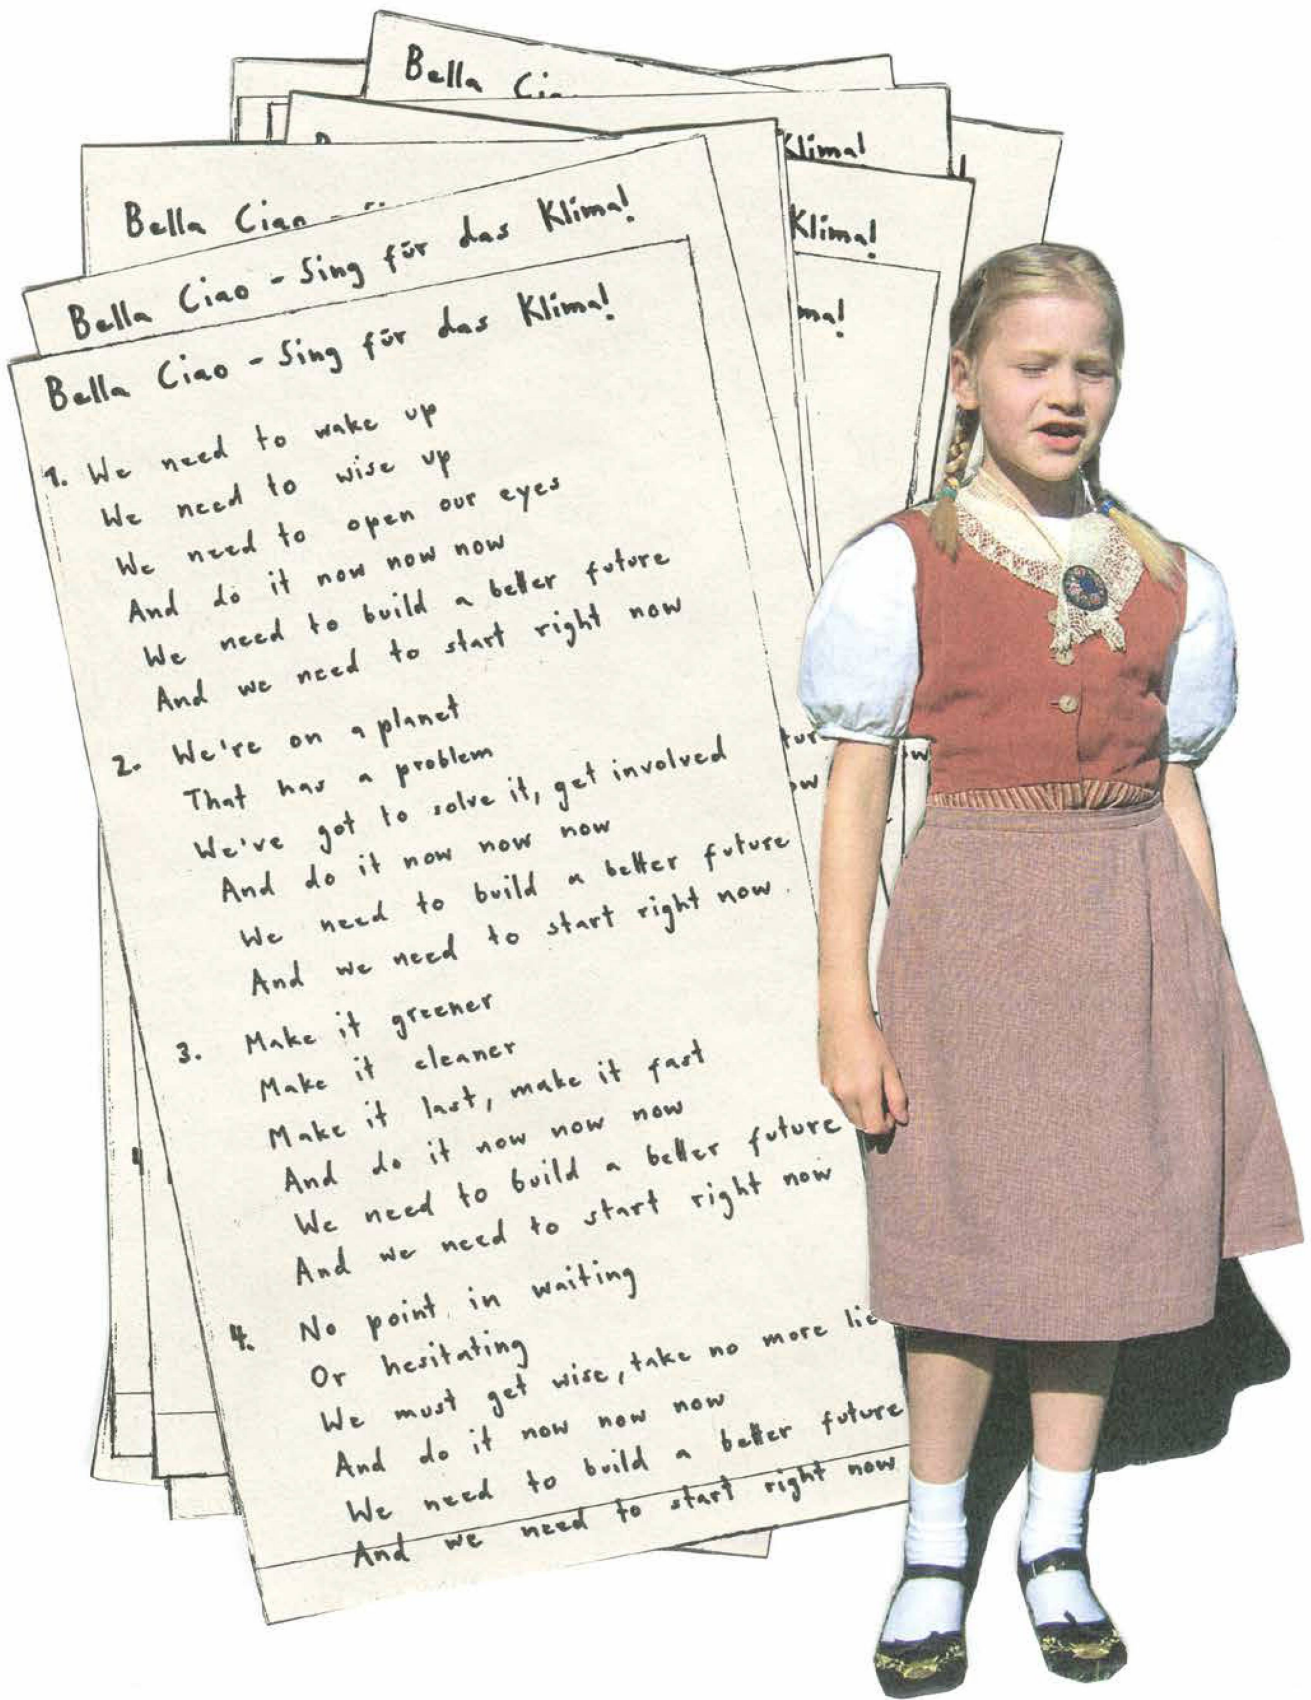 Bella
Klima!
Bella Ciao
Klima!
Bella Ciao - Sing für das Klima!
Bella Ciao - Sing für das Klima!
1. We need to wake up
We need to wise up
We need to open our eyes
And do it now now now
We need to build a better future
And we need to start right now
2. We're on a planet
That has a problem
We've got to solve it, get involved
And do it now now now
We need to build a better future
And we need to start right now
3. Make it greener
Make it cleaner
Make it last, make it fast
And do it now now now
We need to build a better future
And we need to start right now
4. No point in waiting
Or hesitating
We must get wise, take no more lie
And do it now now now
We need to build a better future
And we need to start right now